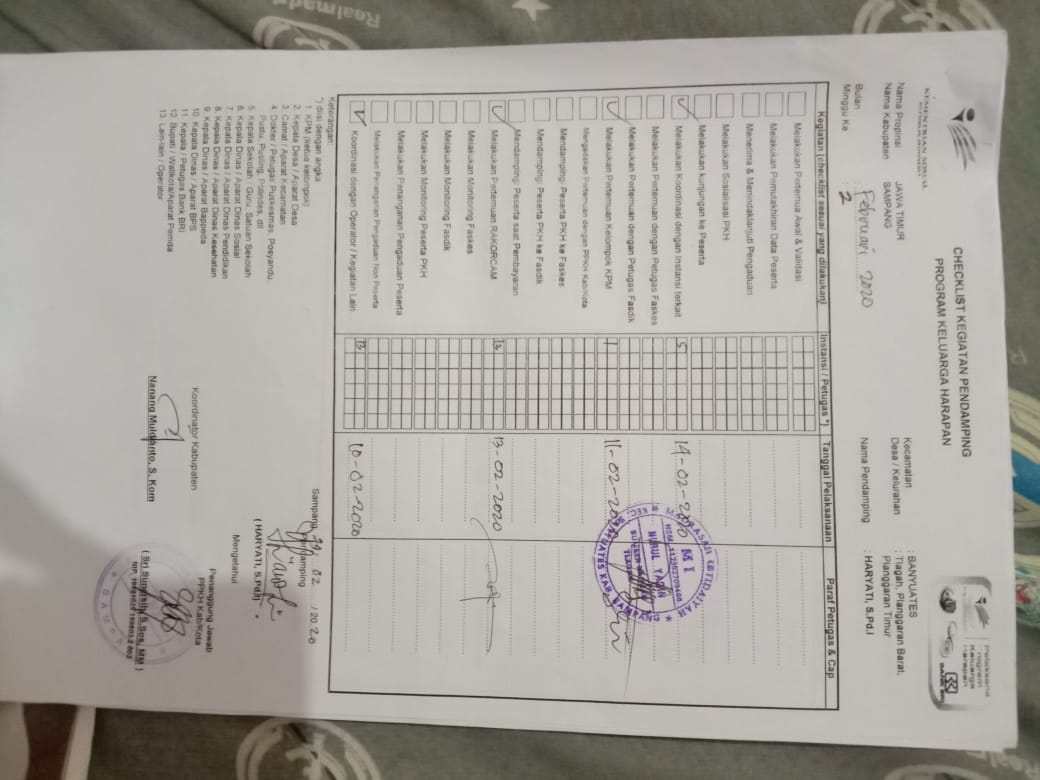 KEMENTRIAN SOSIAL
REPUBLIK INDONESIA
CHECKLIST KEGIATAN PENDAMPING
PROGRAM KELUARGA HARAPAN
Pelaksana
Program
Keluarga
Harapan
BANK BRI
Nama Propinsi : JAWA TIMUR
Nama Kabupaten : SAMPANG
Bulan : Februari 2020
Minggu Ke : 2
Kecamatan : BANYUATES
Desa / Kelurahan : Tlagah, Planggaran Barat,
Planggaran Timur
Nama Pendamping : HARYATI, S.Pd.I
Kegiatan (checklist sesuai yang dilakukan) Instansi / Petugas *) Tanggal Pelaksanaan Paraf Petugas & Cap
Melakukan Pertemua Awal & Validasi
Melakukan Pemutakhiran Data Peserta
Menerima & Menindaklanjuti Pengaduan
Melakukan Sosialisasi PKH
Melakukan kunjungan ke Peserta
Melakukan Koordinasi dengan Instansi terkait 5 14-02-2020
Melakukan Pertemuan dengan Petugas Faskes
Melakukan Pertemuan dengan Petugas Fasdik
Melakukan Pertemuan Kelompok KPM 1 11-02-2020
Mengadakan Pertemuan dengan PPKH Kab/Kota
Mendamping Peserta PKH ke Faskes
Mendamping Peserta PKH ke Fasdik
Mendamping Peserta saat Pembayaran
Melakukan Pertemuan RAKORCAM 13 13-02-2020
Melakukan Monitoring Faskes
Melakukan Monitoring Fasdik
Melakukan Monitoring Peserta PKH
Melakukan Penanganan Pengaduan Peserta
Melakukan Penanganan Pengaduan Non Peserta
Koordinasi dengan Operator / Kegiatan Lain... 13 10-02-2020
MADRASAH IBTIDAIYAH
MI
NURUL YAQIN
KEC. BANYUATES KAB. SAMPANG
Keterangan:
*) diisi dengan angka
1. KPM (ketua kelompok)
2. Kepala Desa / Aparat Desa
3. Camat / Aparat Kecamatan
4. Dokter / Petugas Puskesmas, Posyandu,
Pustu, Pusling, Polindes, dll
5. Kepala Sekolah / Guru, Satuan Sekolah
6. Kepala Dinas / Aparat Dinas Sosial
7. Kepala Dinas / Aparat Dinas Pendidikan
8. Kepala Dinas / Aparat Dinas Kesehatan
9. Kepala Dinas / Aparat Bappeda
10. Kepala Dinas / Aparat BPS
11. Kepala / Petugas Bank BRI
12. Bupati / Walikota/Aparat Pemda
13. Lain-lain / Operator
Sampang, 02 / 2020
Pendamping
( HARYATI, S.Pd.I )
Mengetahui
Koordinator Kabupaten
Nanang Muldianto, S. Kom
Penanggung Jawab
PPKH Kab/Kota
Realme